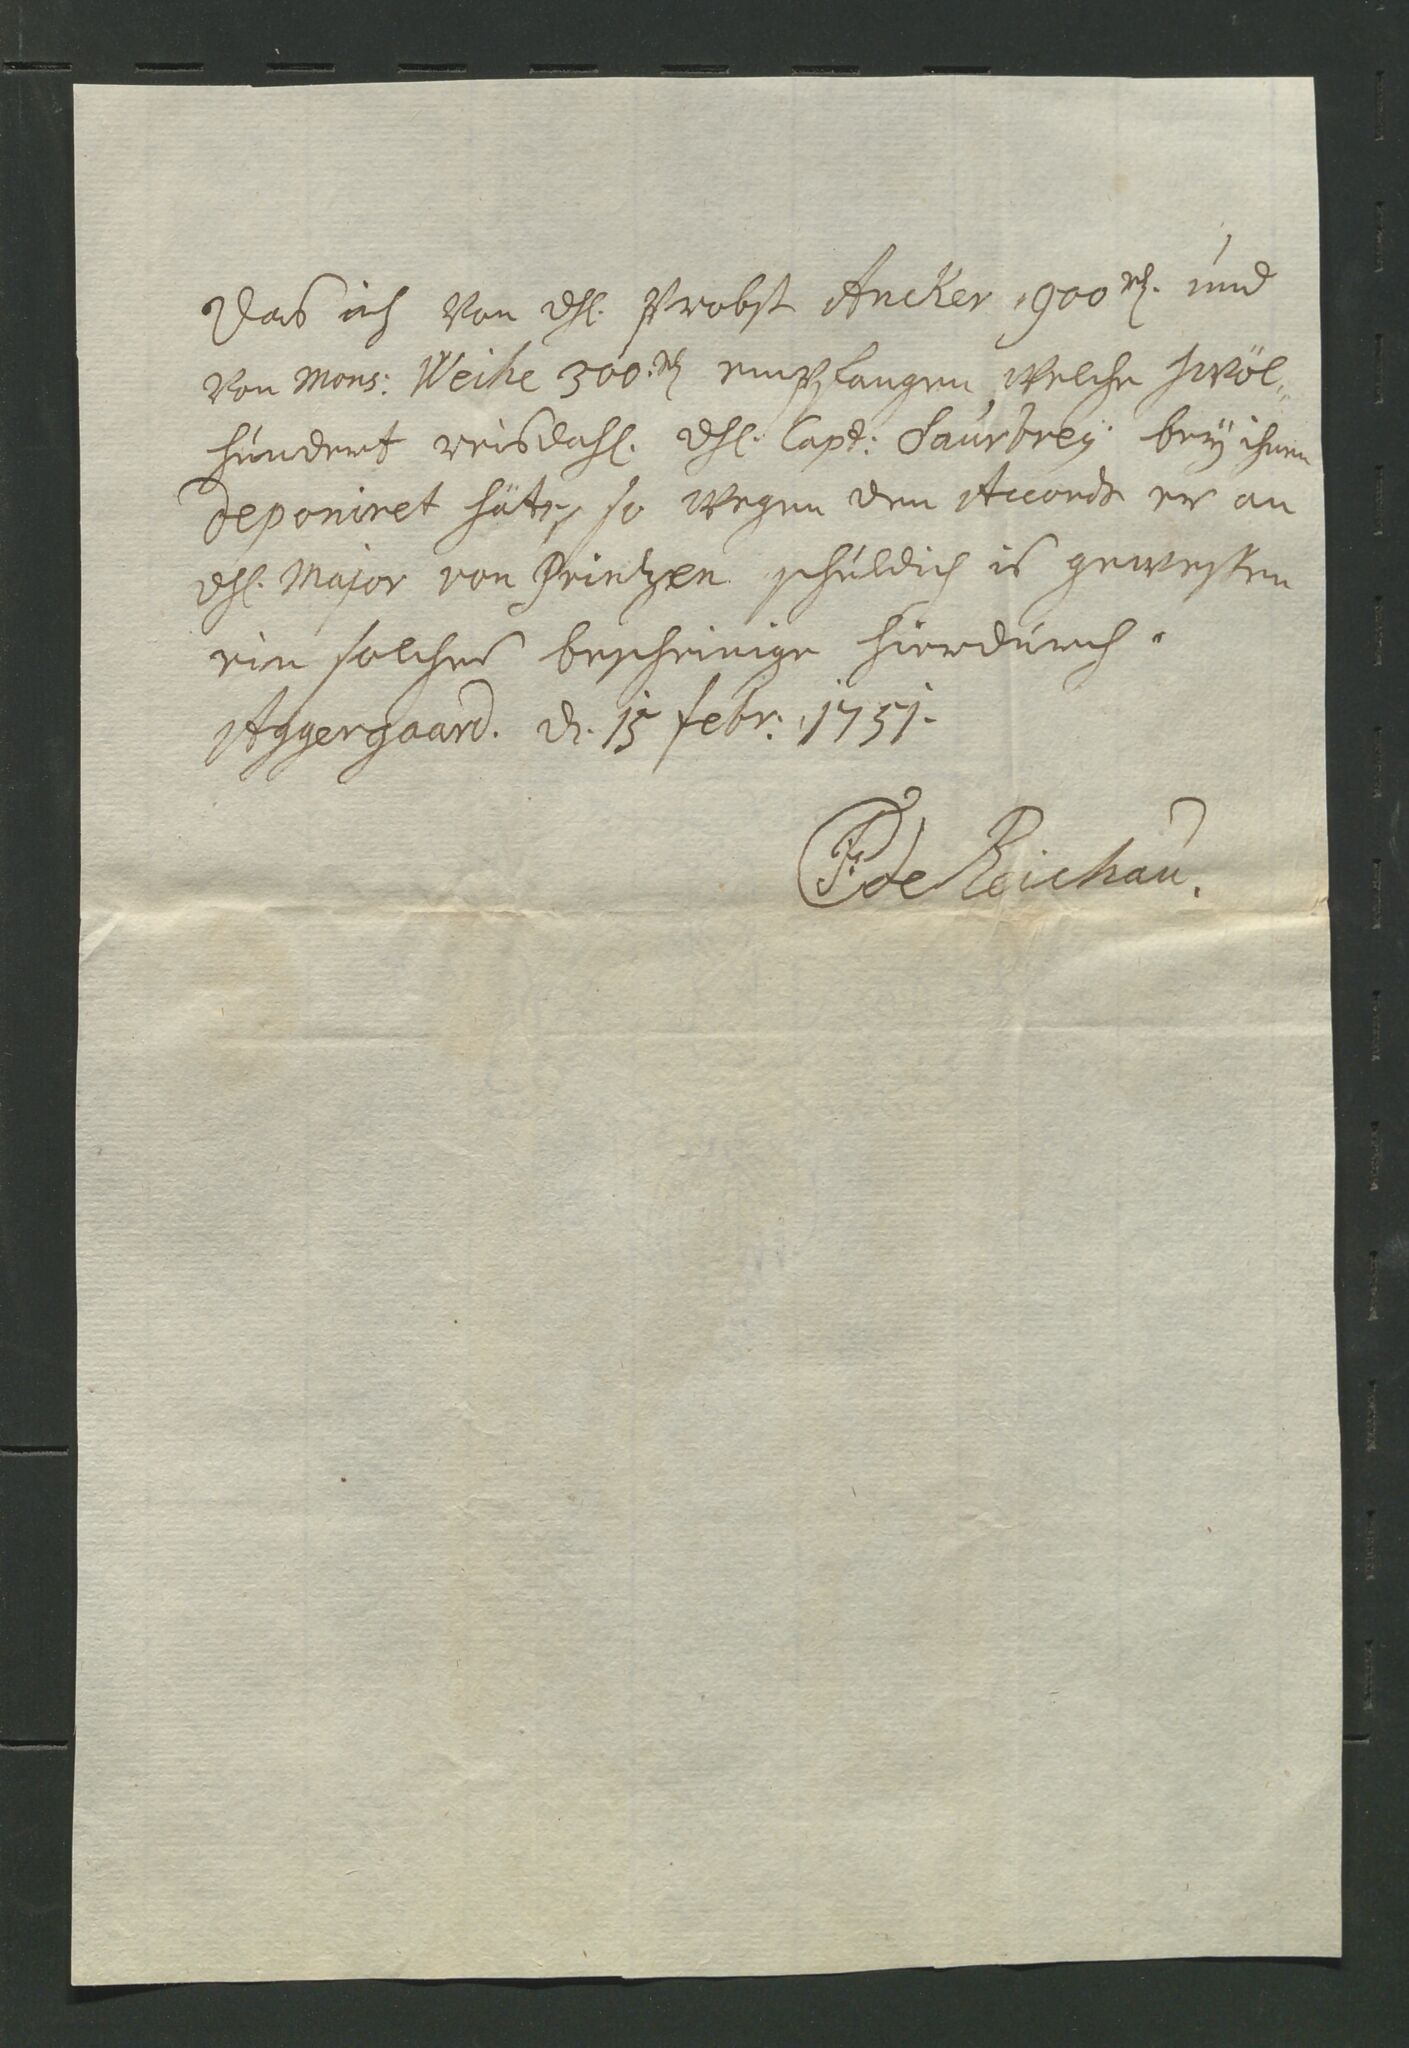 Das ich von Hl. Probst Ancker 900 rh. und
von Mons: Weihe 300. rh empfangen, welche zwöl„
hundert reisdahl. Hl. Capt: Saurbreÿ beÿ ihnen
deponiret hätte, so wegen den Accords er an
Hl. Major von Printzen schuldich is gewessen
ein solches bescheinige hierdurch.
Aggergaard. d. 15 febr: 1751.
F: de Reichau.